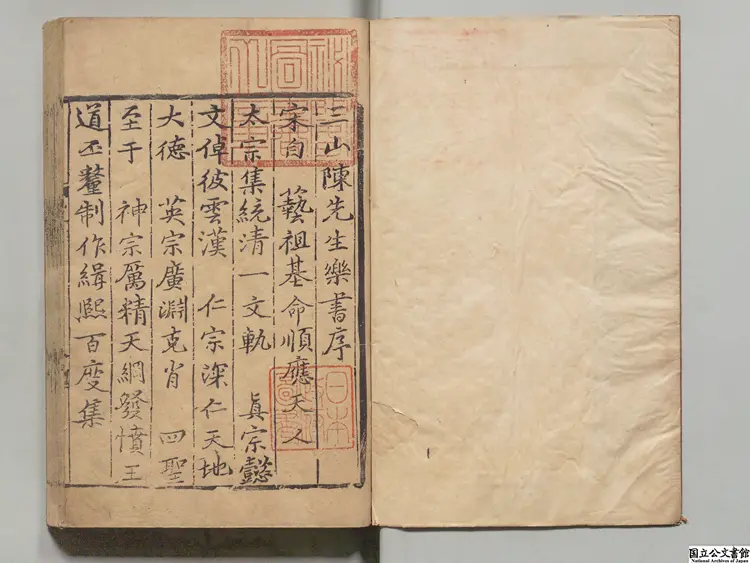 三山陳先生樂書序
宋向　藝祖基命順應天人
太宗集統清一文軌　眞宗懿
文倬彼雲漢　仁宗深仁天地
大德　英宗廣淵克肖　四聖
至于　神宗厲精天綱發憤王
道丕釐制作緝熙百度集
日本
国立公文書館
National Archives of Japan